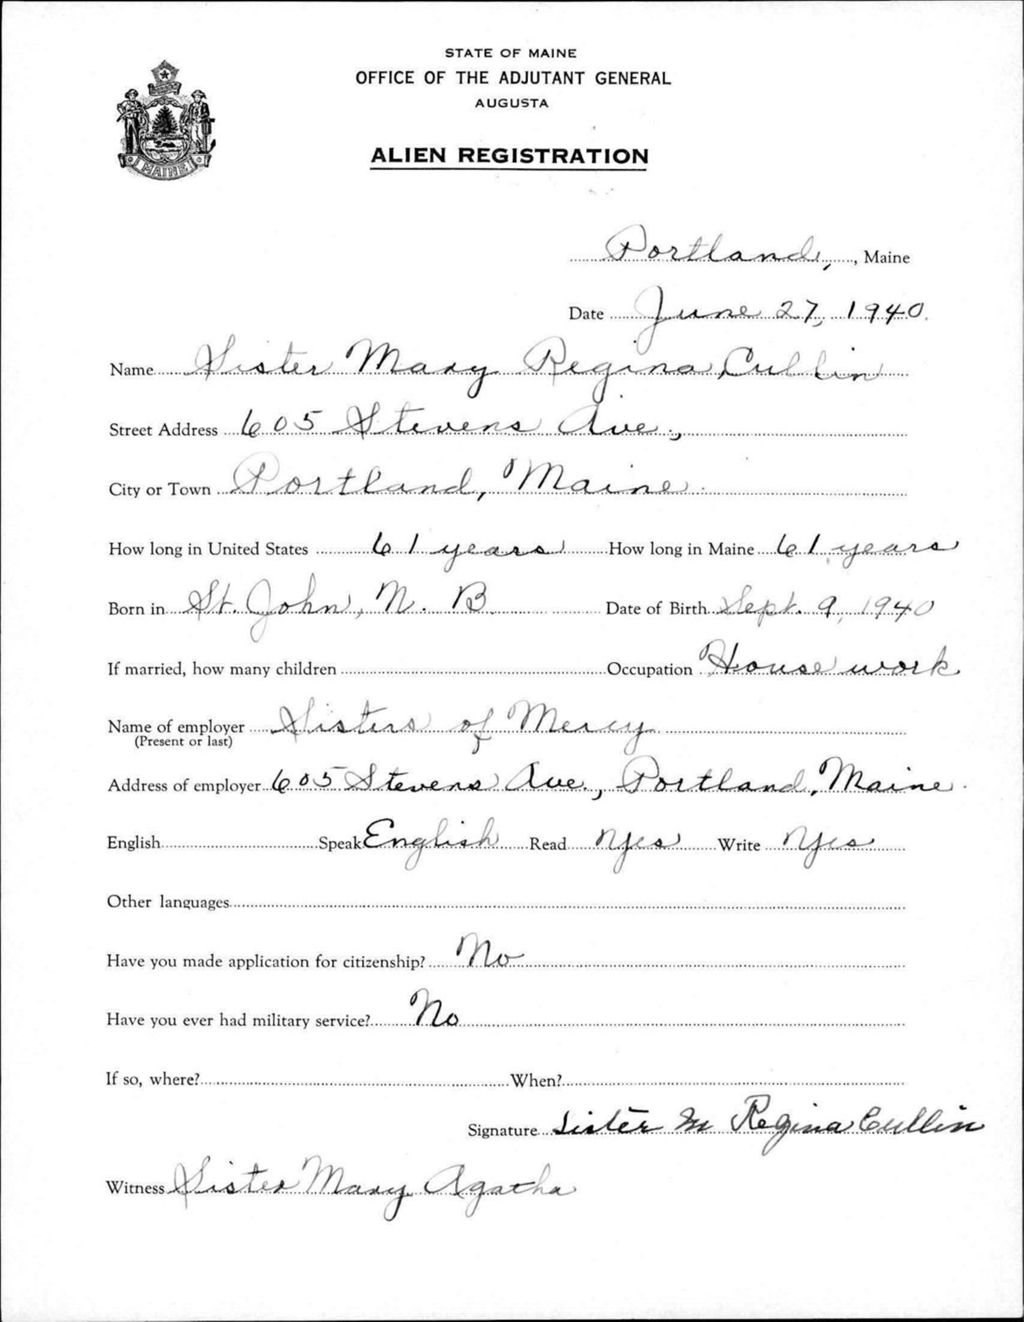 STATE OF MAINE
OFFICE OF THE ADJUTANT GENERAL
AUGUSTA
ALIEN REGISTRATION
MAINE
Portland, , Maine
Date June 27, 1940.
Name Sister Mary Regina Cullin
Street Address 605 Stevens Ave.,
City or Town Portland, Maine.
How long in United States 61 years How long in Maine 61 years
Born in St. John, N. B. Date of Birth Sept. 9, 1940
If married, how many children Occupation House work
Name of employer Sisters of Mercy
(Present or last)
Address of employer 605 Stevens Ave., Portland, Maine.
English Speak English Read Yes Write Yes
Other languages
Have you made application for citizenship? No
Have you ever had military service? No
If so, where? When?
Signature Sister M Regina Cullin
Witness Sister Mary Agatha